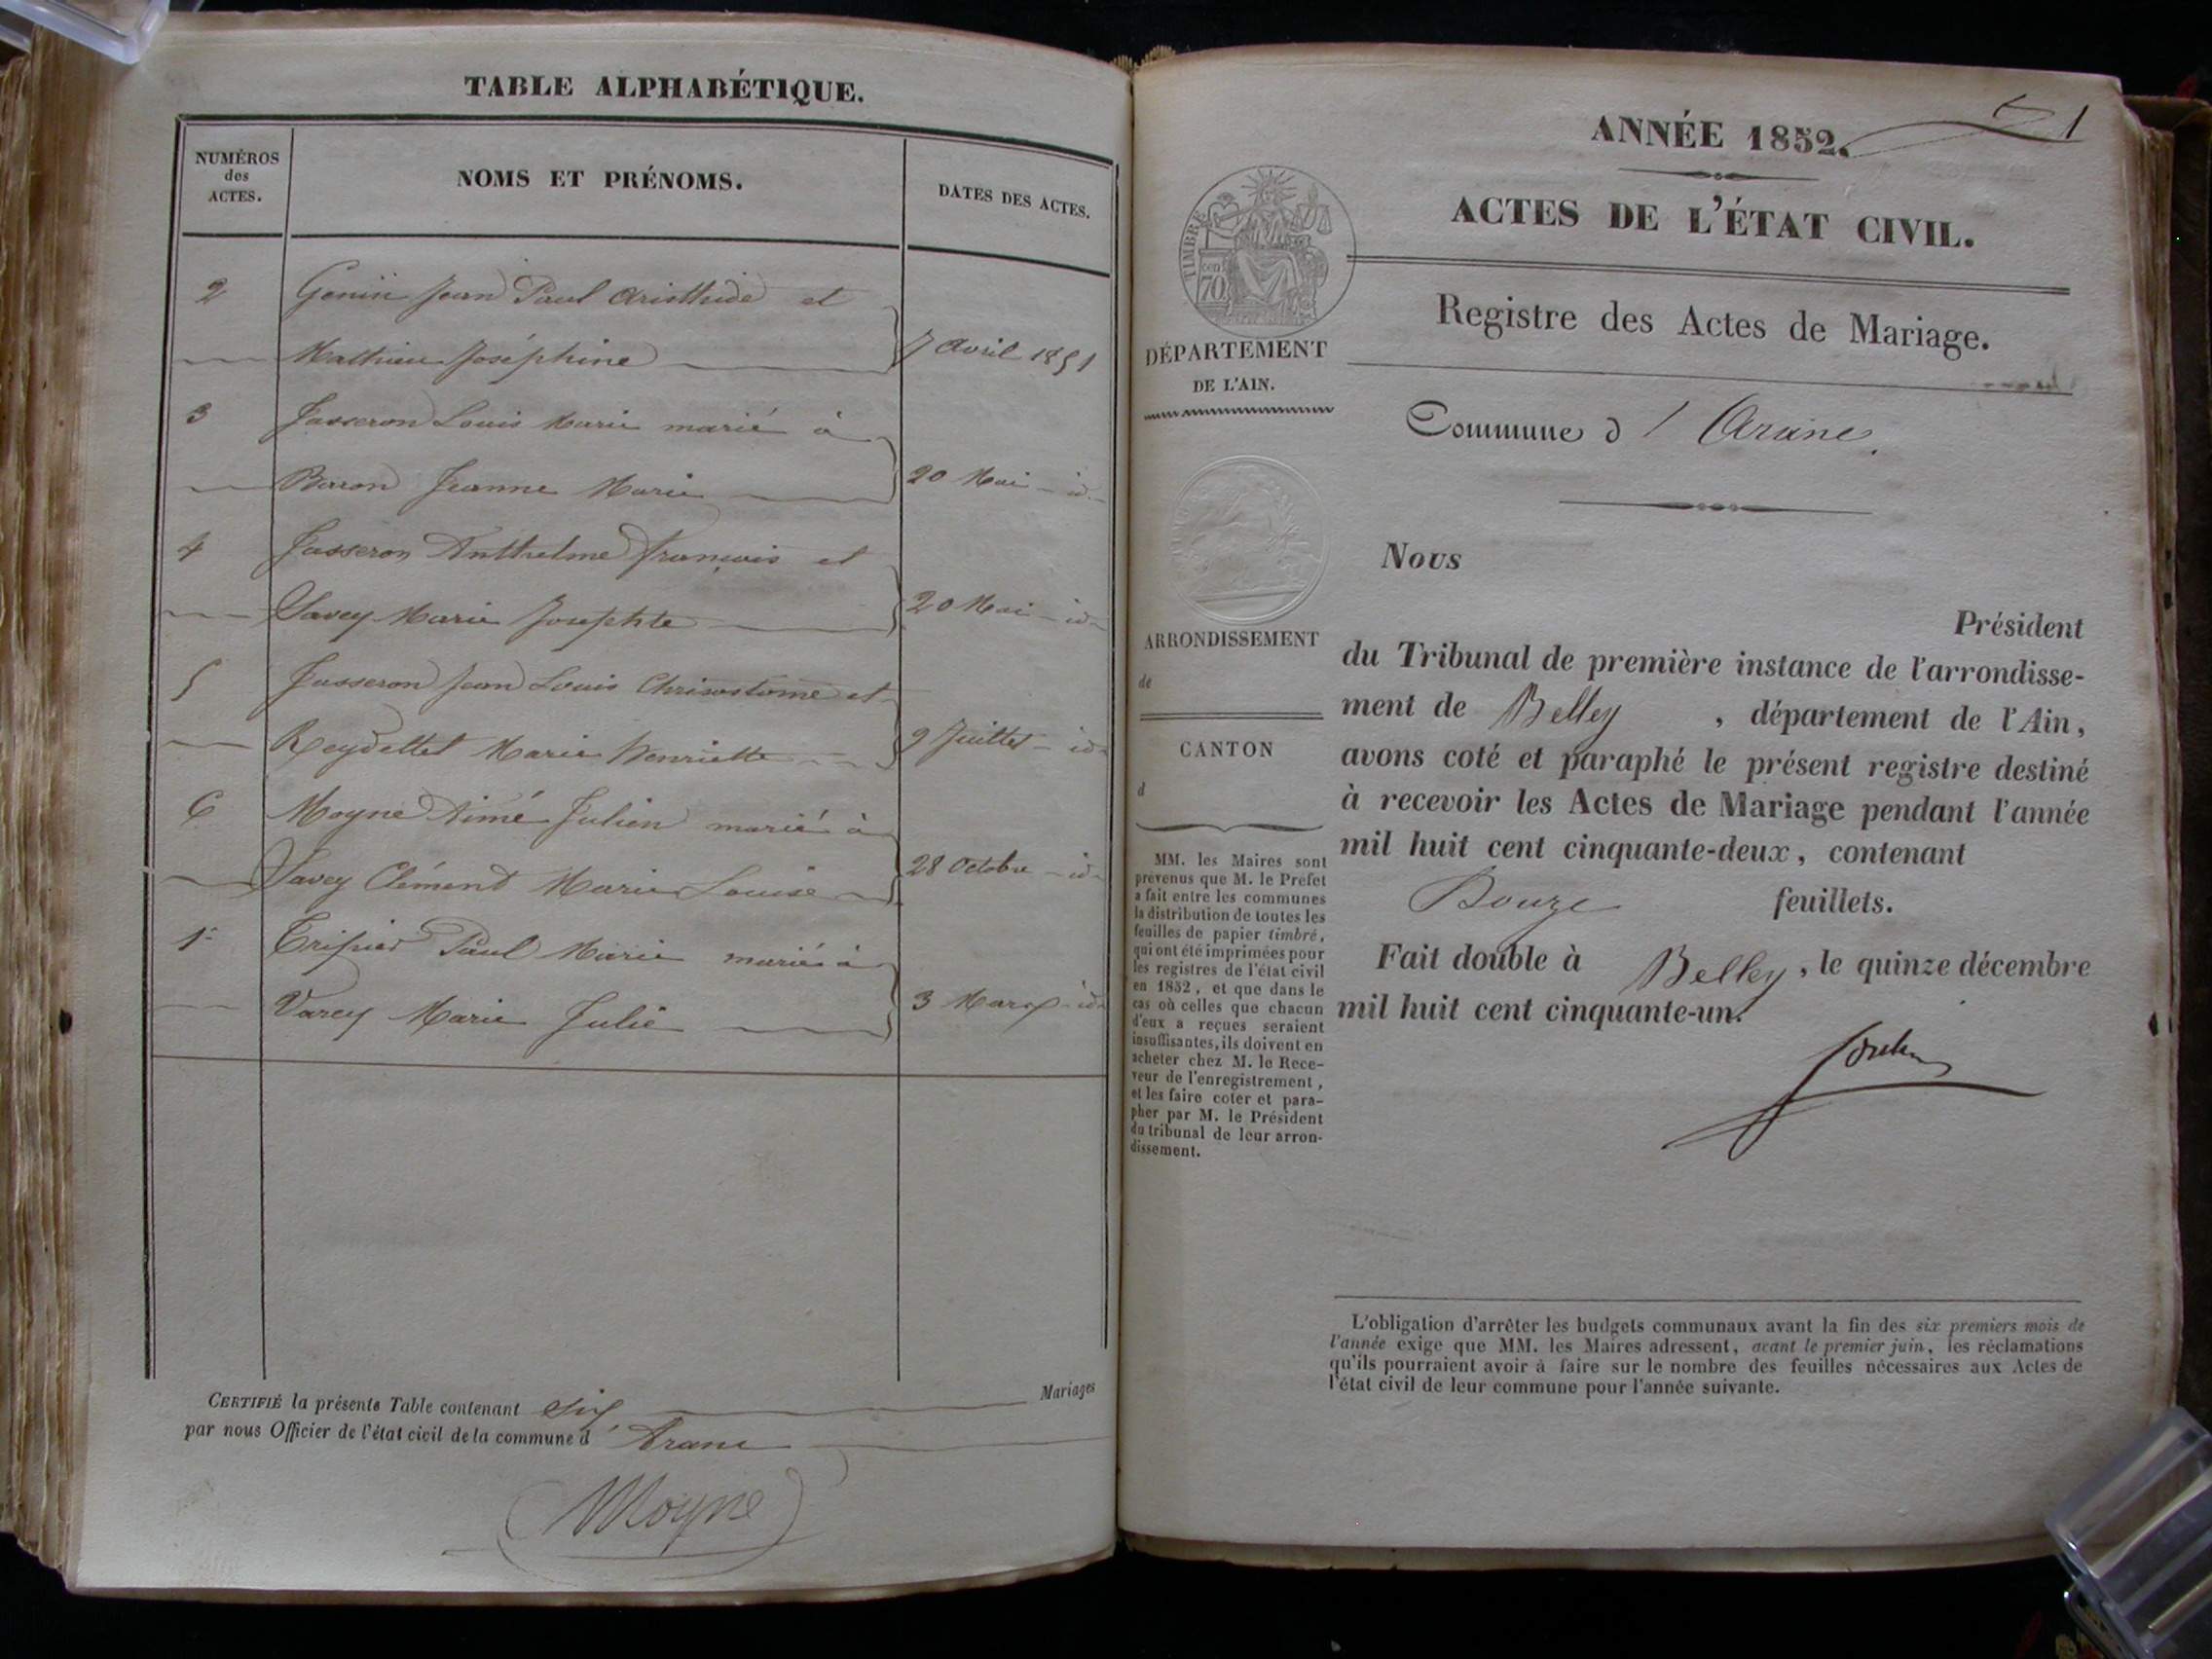 TABLE ALPHABÉTIQUE.
NUMÉROS
des
ACTES.
NOMS ET PRÉNOMS.
DATES DES ACTES.
2 Genin Jean Paul Aristhide et
Mathieu Joséphine 7 Avril 1851
3 Jasseron Louis Marie marié à
Baron Jeanne Marie 20 Mai id
4 Jasseron Anthelme françois et
Savey Marie Josephte 20 Mai id
5 Jasseron Jean Louis Chrisostome et
Reydellet Marie Henriette 9 Juillet id
6 Moyne Aimé Julien marié à
Savey Clément Marie Louise 28 Octobre id
1er Tripier Paul Marie marié à
Varey Marie Julie 3 Mars id
CERTIFIÉ la présente Table contenant six Mariages
par nous Officier de l'état civil de la commune d' Aranc
Moyne
1
ANNÉE 1852.
ACTES DE L'ÉTAT CIVIL.
Registre des Actes de Mariage.
Commune d' Arane
TIMBRE
cent
70
DÉPARTEMENT
DE L'AIN.
ARRONDISSEMENT
de
CANTON
d
MM. les Maires sont
prévenus que M. le Préfet
a fait entre les communes
la distribution de toutes les
feuilles de papier timbré,
qui ont été imprimées pour
les registres de l'état civil
en 1852, et que dans le
cas où celles que chacun
d'eux a reçues seraient
insuffisantes, ils doivent en
acheter chez M. le Rece-
veur de l'enregistrement,
et les faire coter et para-
pher par M. le Président
du tribunal de leur arron-
dissement.
Nous
Président
du Tribunal de première instance de l'arrondisse-
ment de Belley , département de l'Ain,
avons coté et paraphé le présent registre destiné
à recevoir les Actes de Mariage pendant l'année
mil huit cent cinquante-deux, contenant
Douze feuillets.
Fait double à Belley, le quinze décembre
mil huit cent cinquante-un.
L'obligation d'arrêter les budgets communaux avant la fin des six premiers mois de
l'année exige que MM. les Maires adressent, avant le premier juin, les réclamations
qu'ils pourraient avoir à faire sur le nombre des feuilles nécessaires aux Actes de
l'état civil de leur commune pour l'année suivante.